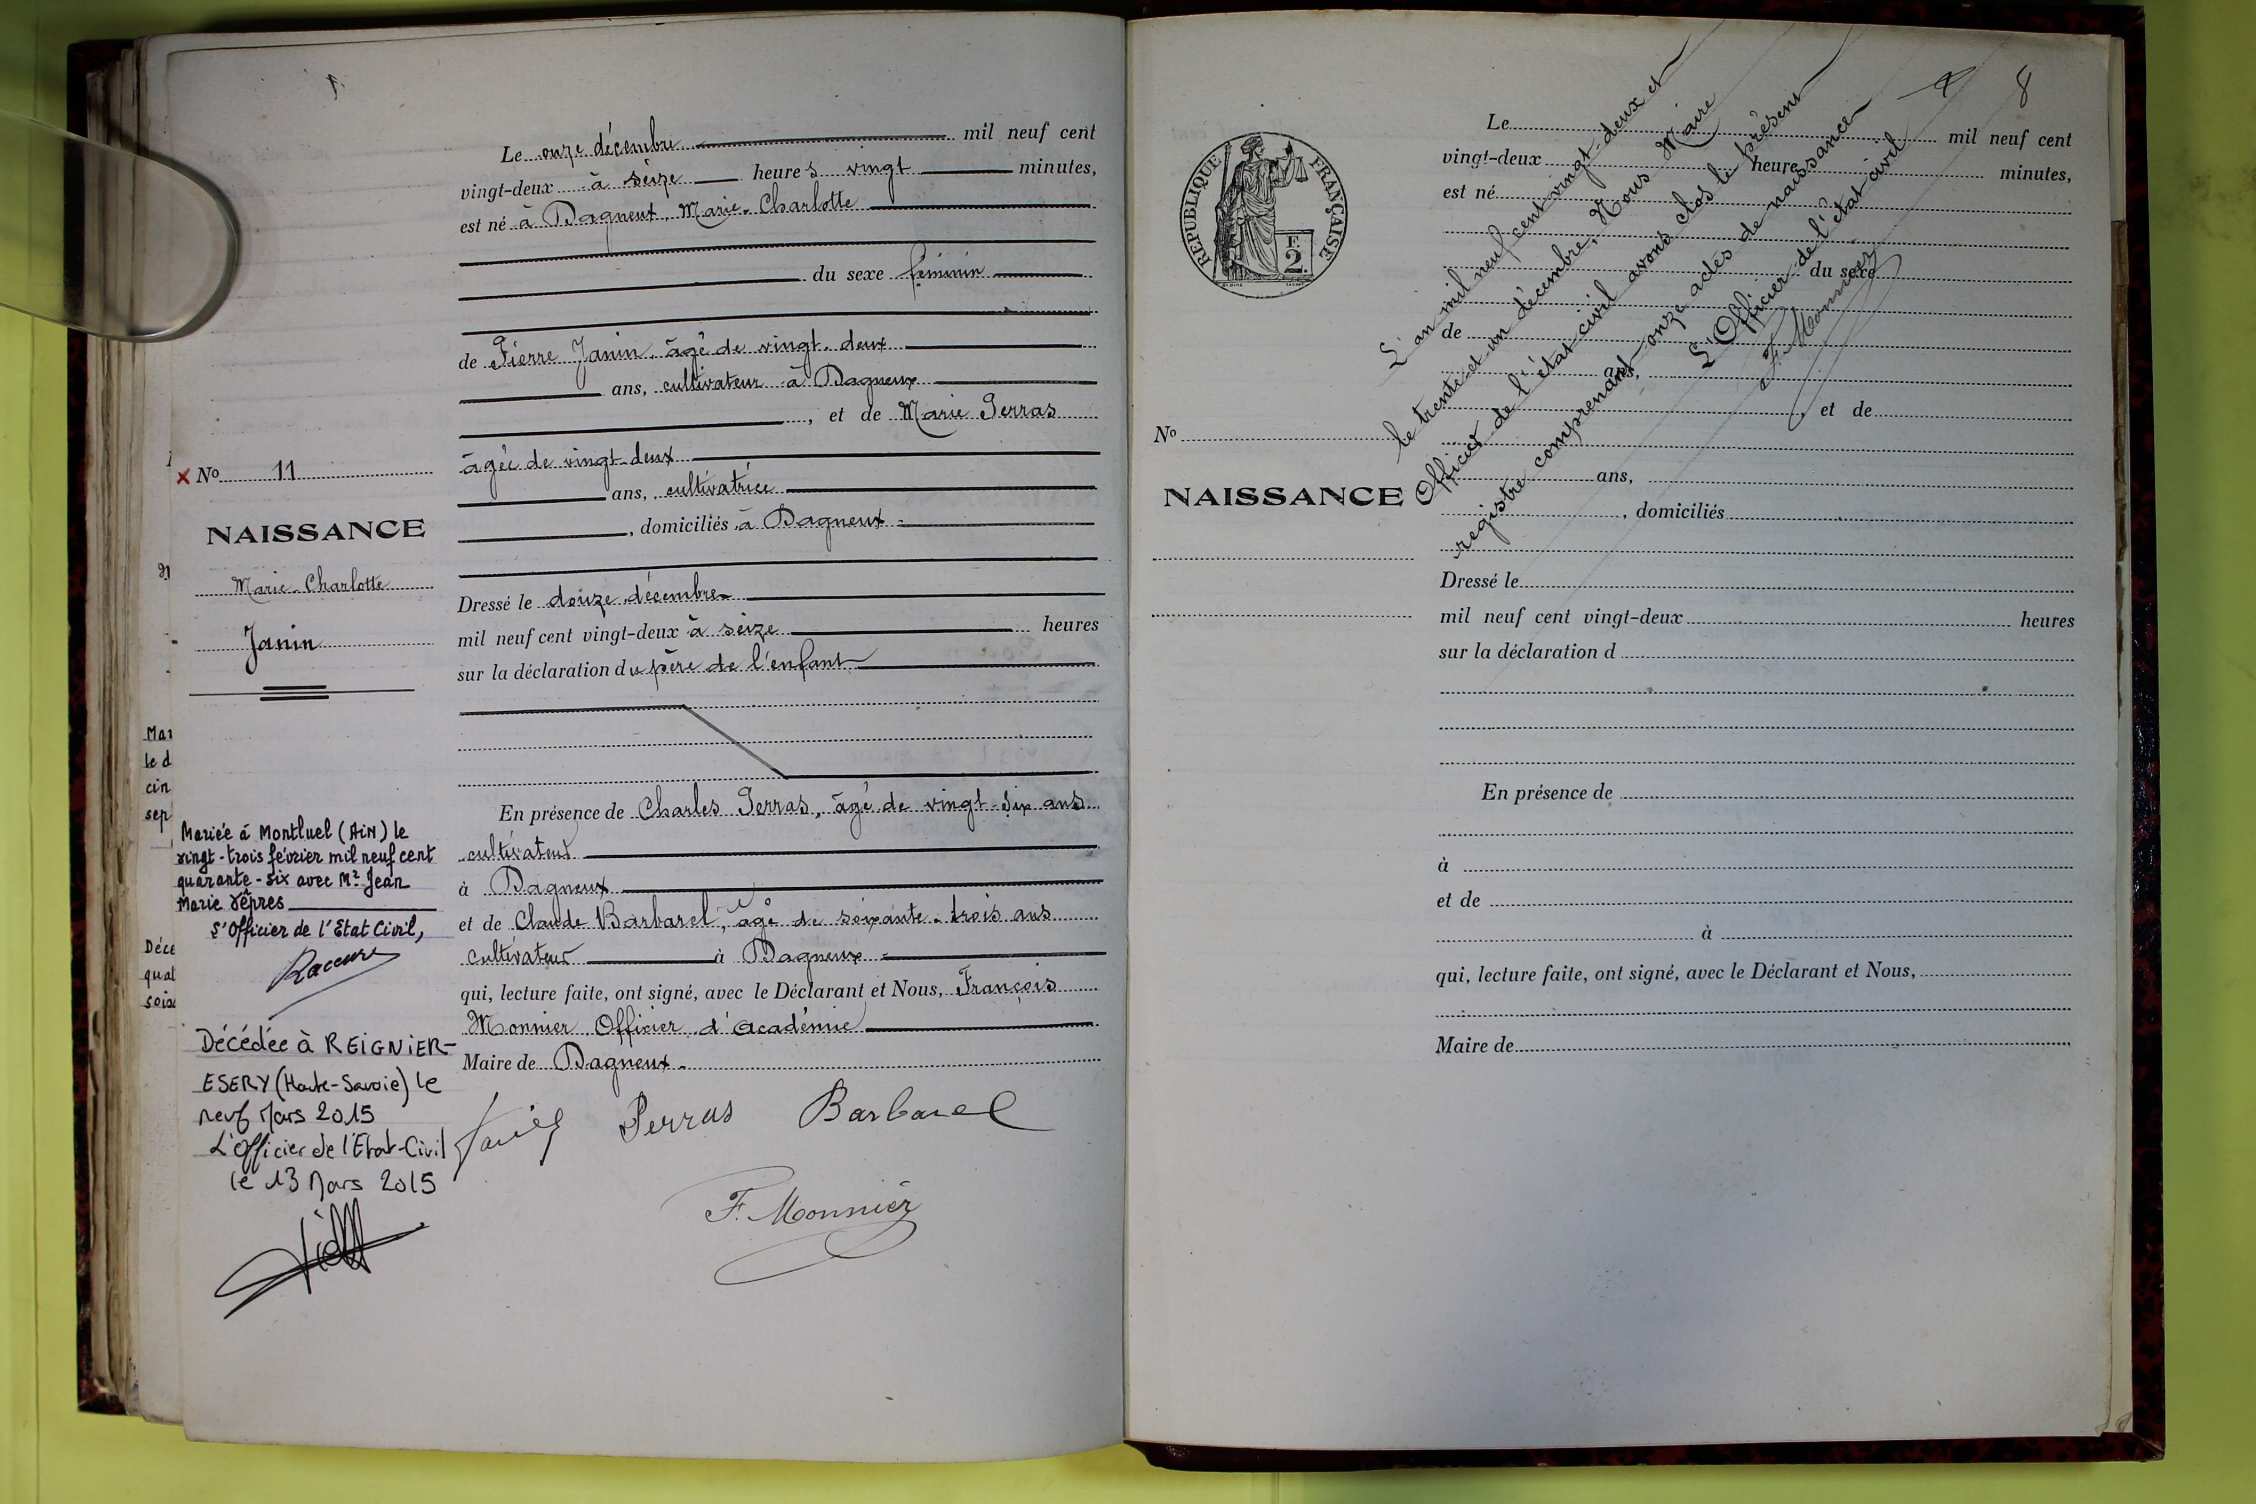 Le onze décembre mil neuf cent
vingt-deux à seize heures vingt minutes,
est né à Dagneux, Marie-Charlotte
du sexe féminin
de Pierre Janin, âgé de vingt-deux
ans, cultivateur à Dagneux
, et de Marie Perras
âgée de vingt-deux
ans, cultivatrice
, domiciliés à Dagneux
Dressé le douze décembre
mil neuf cent vingt-deux à seize heures
sur la déclaration du père de l'enfant
En présence de Charles Perras, âgé de vingt-six ans
cultivateur
à Dagneux
et de Claude Barbarel, âgé de soixante-trois ans
cultivateur à Dagneux
qui, lecture faite, ont signé, avec le Déclarant et Nous, François
Monnier Officier d'Académie
Maire de Dagneux.
Janin Perras Barbarel
F. Monnier
x No 11
NAISSANCE
Marie-Charlotte
Janin
Mariée à Montluel (Ain) le
vingt-trois février mil neuf cent
quarante-six avec Mr Jean
Marie Vêpres
L'Officier de l'Etat Civil,
Décédée à REIGNIER-
ESERY (Haute-Savoie) le
neuf Mars 2015
L'Officier de l'Etat-Civil
le 13 Mars 2015
Mar
le d
cin
sep
Déce
quat
soix
8
RÉPUBLIQUE FRANÇAISE
F.
2.
No
NAISSANCE
Le mil neuf cent
vingt-deux heure minutes,
est né
du sexe
de
ans,
, et de
ans,
, domiciliés
Dressé le
mil neuf cent vingt-deux heures
sur la déclaration d
En présence de
à
et de
à
qui, lecture faite, ont signé, avec le Déclarant et Nous,
Maire de
L'an mil neuf cent vingt-deux et
le trente et un décembre, Nous Maire
Officier de l'état civil avons clos le présent
registre comprenant onze actes de naissance
L'Officier de l'état civil
F. Monnier